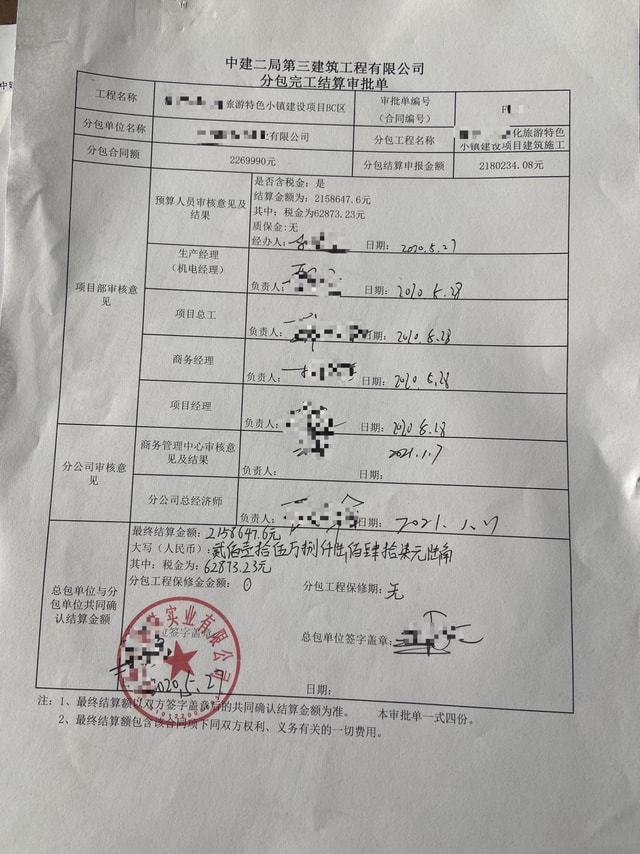 中建二局第三建筑工程有限公司
分包完工结算审批单
工程名称
旅游特色小镇建设项目BC区
审批单编号
(合同编号)
F
分包单位名称
业有限公司
分包工程名称
化旅游特色
小镇建设项目建筑施工
分包合同额
2269990元
分包结算申报金额
2180234.08元
项目部审核意见
预算人员审核意见及结果
是否含税金: 是
结算金额为: 2158647.6元
其中: 税金为62873.23元
质保金:无
经办人: 日期: 2020.5.27
生产经理
(机电经理)
负责人: 日期: 2020 5.28
项目总工
负责人: 日期: 2020.5.28
商务经理
负责人: 日期: 2020.5.28
项目经理
负责人: 日期: 2020 5.28
分公司审核意见
商务管理中心审核意见及结果
负责人: 日期: 2021.1.7
分公司总经济师
负责人: 日期: 2021.1.7
总包单位与分包单位共同确认结算金额
最终结算金额: 2158647.6元
大写（人民币）: 贰佰壹拾伍万捌仟陆佰肆拾柒元陆角
其中: 税金为: 62873.23元
分包工程保修金金额: 0
分包工程保修期: 无
签字盖章
实业有限公司
总包单位签字盖章:
2020.5.29
日期:
注: 1、最终结算额以双方签字盖章后的共同确认结算金额为准。 本审批单一式四份。
2、最终结算额包含该合同项下同双方权利、义务有关的一切费用。